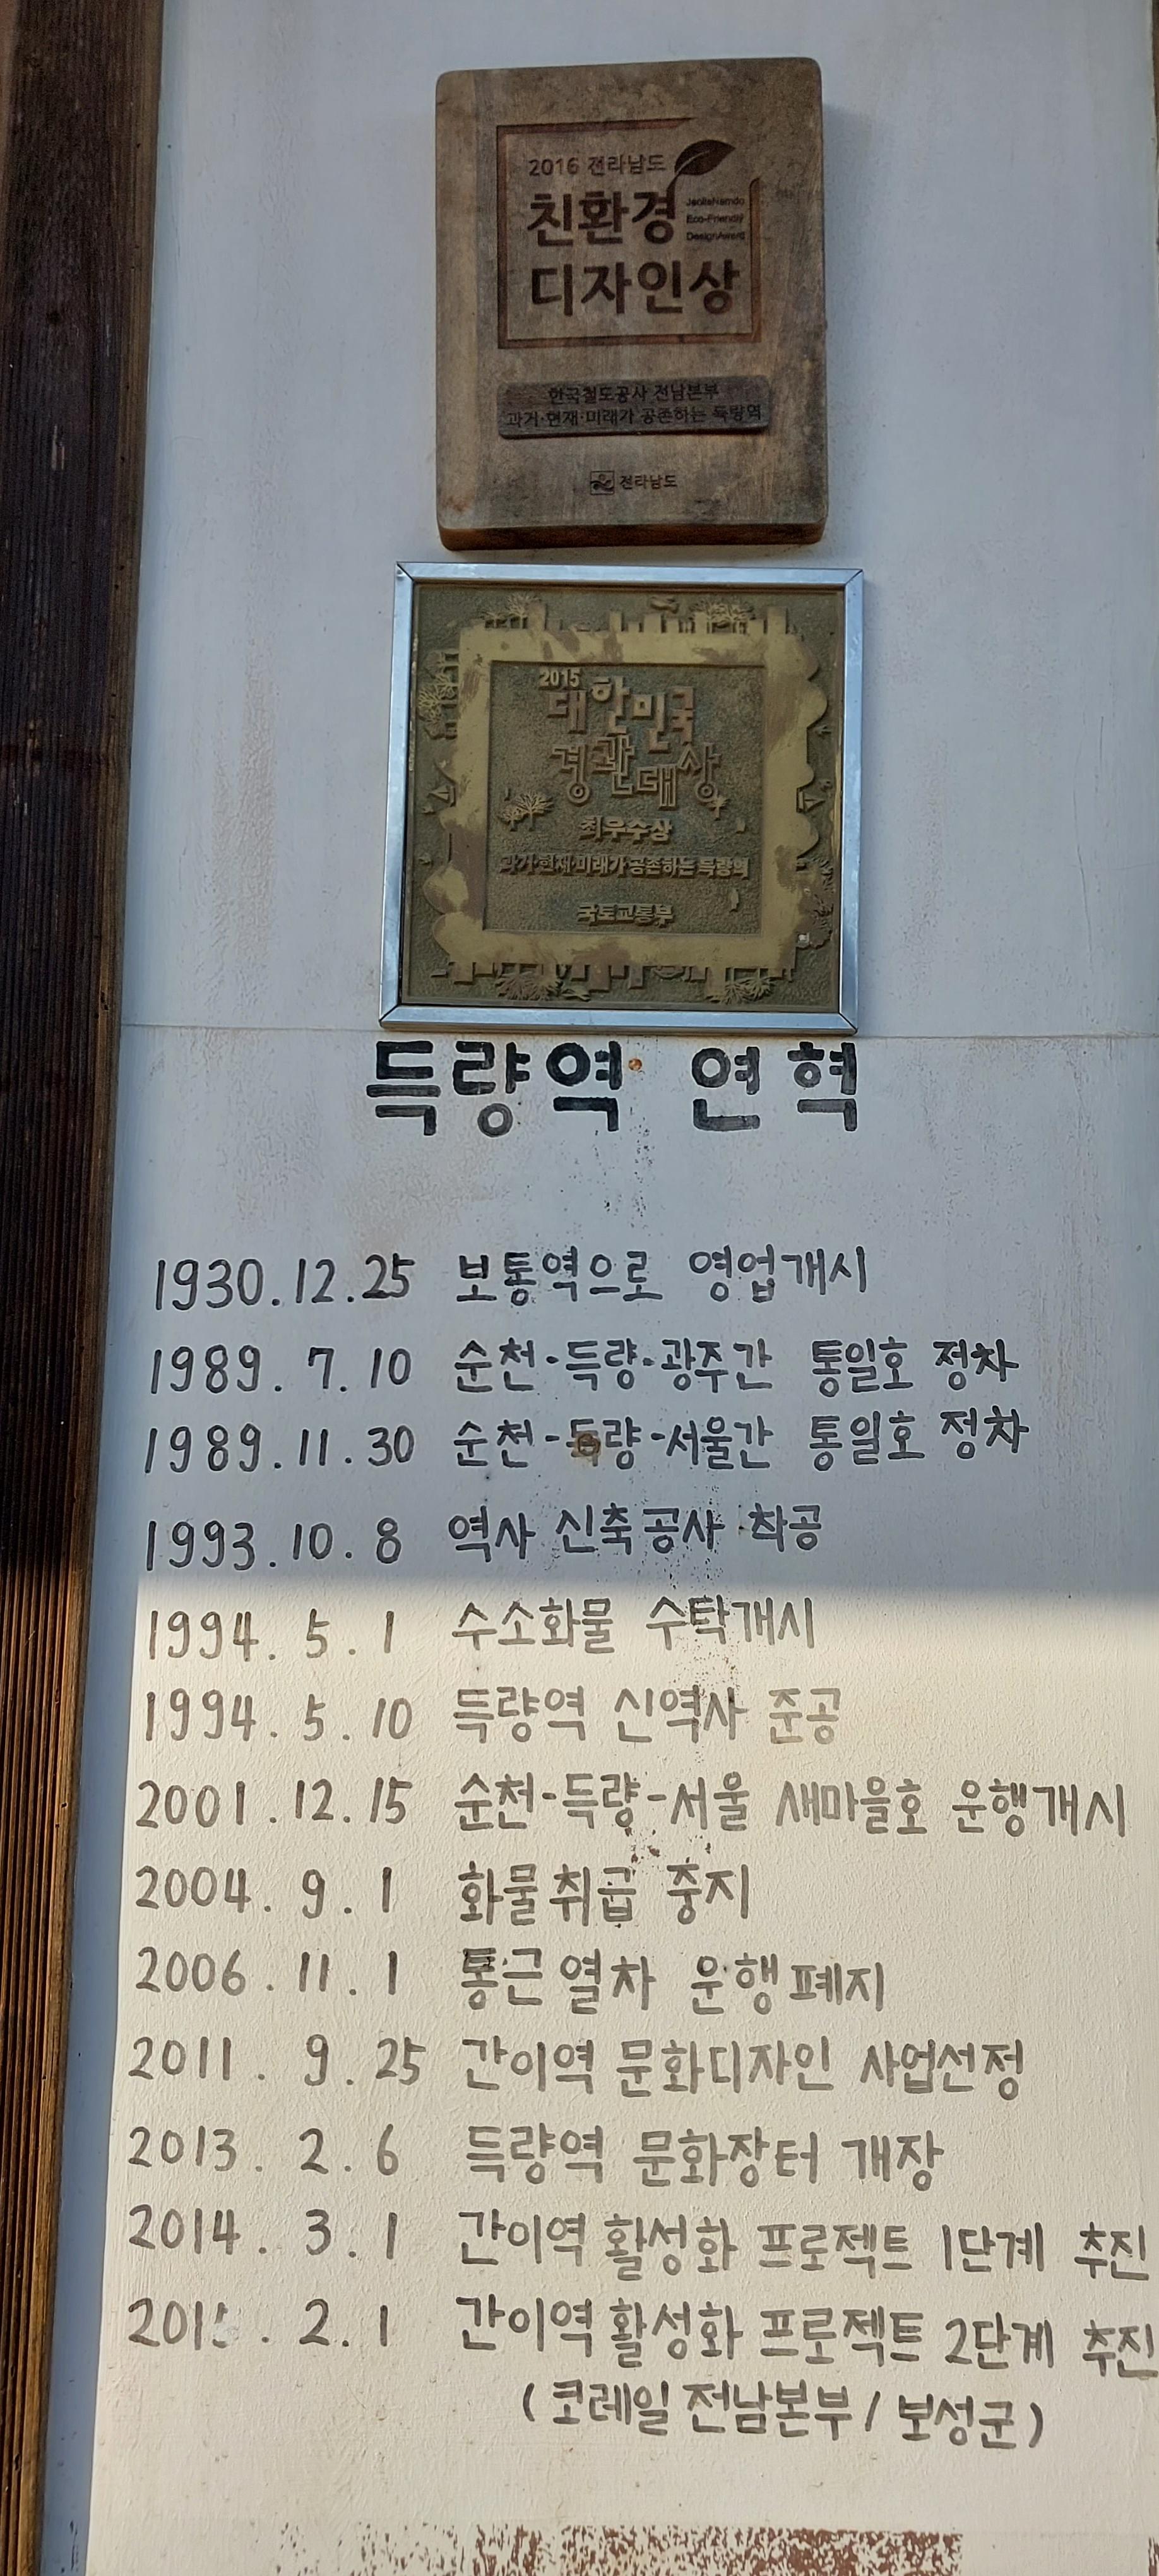 2016 전라남도
친환경
JeollaNamdo
Eco-Friendly
DesignAward
디자인상
한국철도공사 전남본부
과거·현재·미래가 공존하는 득량역
전라남도
2015
대한민국
경관대상
최우수상
과거·현재·미래가 공존하는 득량역
국토교통부
득량역 연혁
1930.12.25 보통역으로 영업개시
1989. 7. 10 순천-득량-광주간 통일호 정차
1989.11.30 순천-득량-서울간 통일호 정차
1993.10. 8 역사 신축공사 착공
1994. 5. 1 수소화물 수탁개시
1994. 5. 10 득량역 신역사 준공
2001. 12. 15 순천-득량-서울 새마을호 운행개시
2004. 9. 1 화물취급 중지
2006. 11. 1 통근열차 운행폐지
2011. 9. 25 간이역 문화디자인 사업선정
2013. 2. 6 득량역 문화장터 개장
2014. 3. 1 간이역 활성화 프로젝트 1단계 추진
2. 1 간이역 활성화 프로젝트 2단계 추진
(코레일 전남본부 / 보성군)